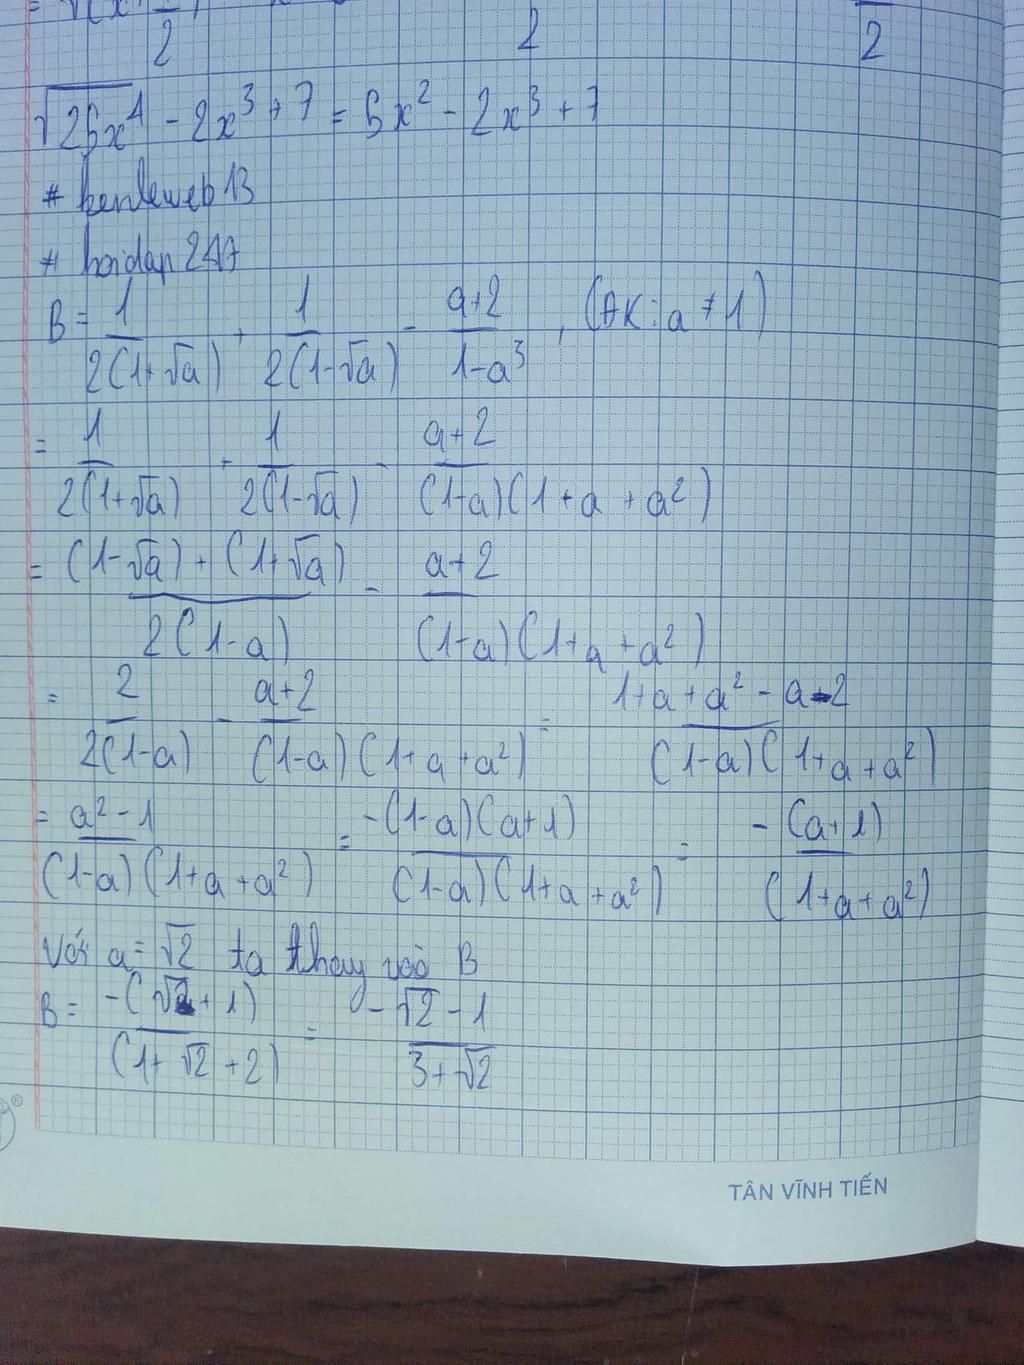 2 2 2
√25x⁴ - 2x³ + 7 = 5x² - 2x³ + 7
# hoidap247
B = 1/2(1+√a) + 1/2(1-√a) - a+2/1-a³ , (ĐK: a ≠ 1)
= 1/2(1+√a) + 1/2(1-√a) - a+2/(1-a)(1+a+a²)
= (1-√a)+(1+√a)/2(1-a) - a+2/(1-a)(1+a+a²)
= 2/2(1-a) - a+2/(1-a)(1+a+a²) = 1+a+a²-a-2/(1-a)(1+a+a²)
= a²-1/(1-a)(1+a+a²) = -(1-a)(a+1)/(1-a)(1+a+a²) = -(a+1)/(1+a+a²)
Với a = √2 ta thay vào B
B = -(√2+1)/(1+√2+2) = -√2-1/3+√2
TÂN VĨNH TIẾN